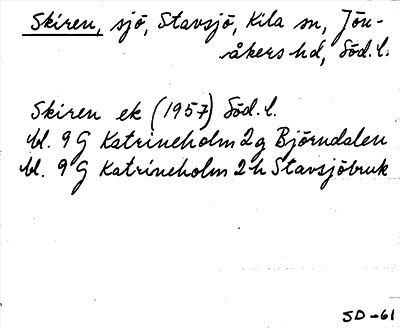 Skiren, sjö, Stavsjö, Kila sn, Jön-
åkers hd, Söd. l.
Skiren ek (1957) Söd. l.
bl. 9 G Katrineholm 2 g Björndalen
bl. 9 G Katrineholm 2 h Stavsjöbruk
SD-61